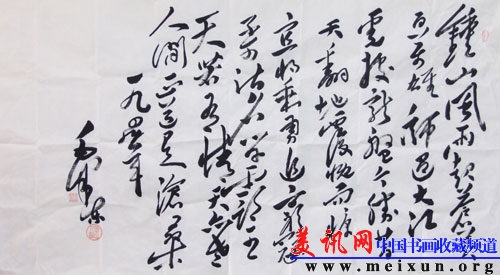 鍾山風雨起蒼黃
百万雄師過大江
虎踞龍盤今勝昔
天翻地覆慨而慷
宜將剩勇追窮寇
不可沽名學霸王
天若有情天亦老
人間正道是滄桑
一九四九年
毛澤東
美讯网 中国书画收藏频道
www.meixun.org